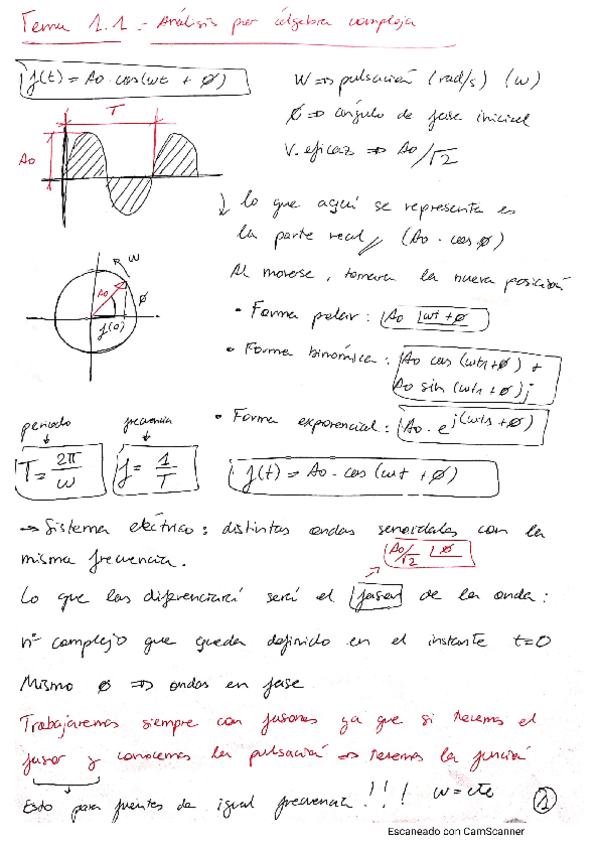 Tema 1.1.- Análisis por álgebra compleja
f(t) = A0 · cos(wt + ø)
W => pulsación (rad/s) (w)
ø => ángulo de fase inicial
V. eficaz => A0/√2
T
A0
↓ lo que aquí se representa es
la parte real, (A0 · cos ø)
Al moverse, tomara la nueva posición
w
A0
ø
f(0)
• Forma polar: A0 ⌊wt + ø
• Forma binómica: A0 cos (wt1 + ø) +
A0 sin (wt1 + ø)j
• Forma exponencial: A0 · e^j(wt1 + ø)
periodo
frecuencia
T = 2π/w
f = 1/T
f(t) = A0 · cos (wt + ø)
→ Sistema eléctrico: distintas ondas senoidales con la
misma frecuencia.
A0/√2 ⌊ø
Lo que las diferenciará será el fasor de la onda:
nº complejo que queda definido en el instante t=0
Mismo ø => ondas en fase
Trabajaremos siempre con fasores ya que si tenemos el
fasor y conocemos la pulsación => tenemos la función
Esto para fuentes de igual frecuencia!!! w = cte
1
Escaneado con CamScanner